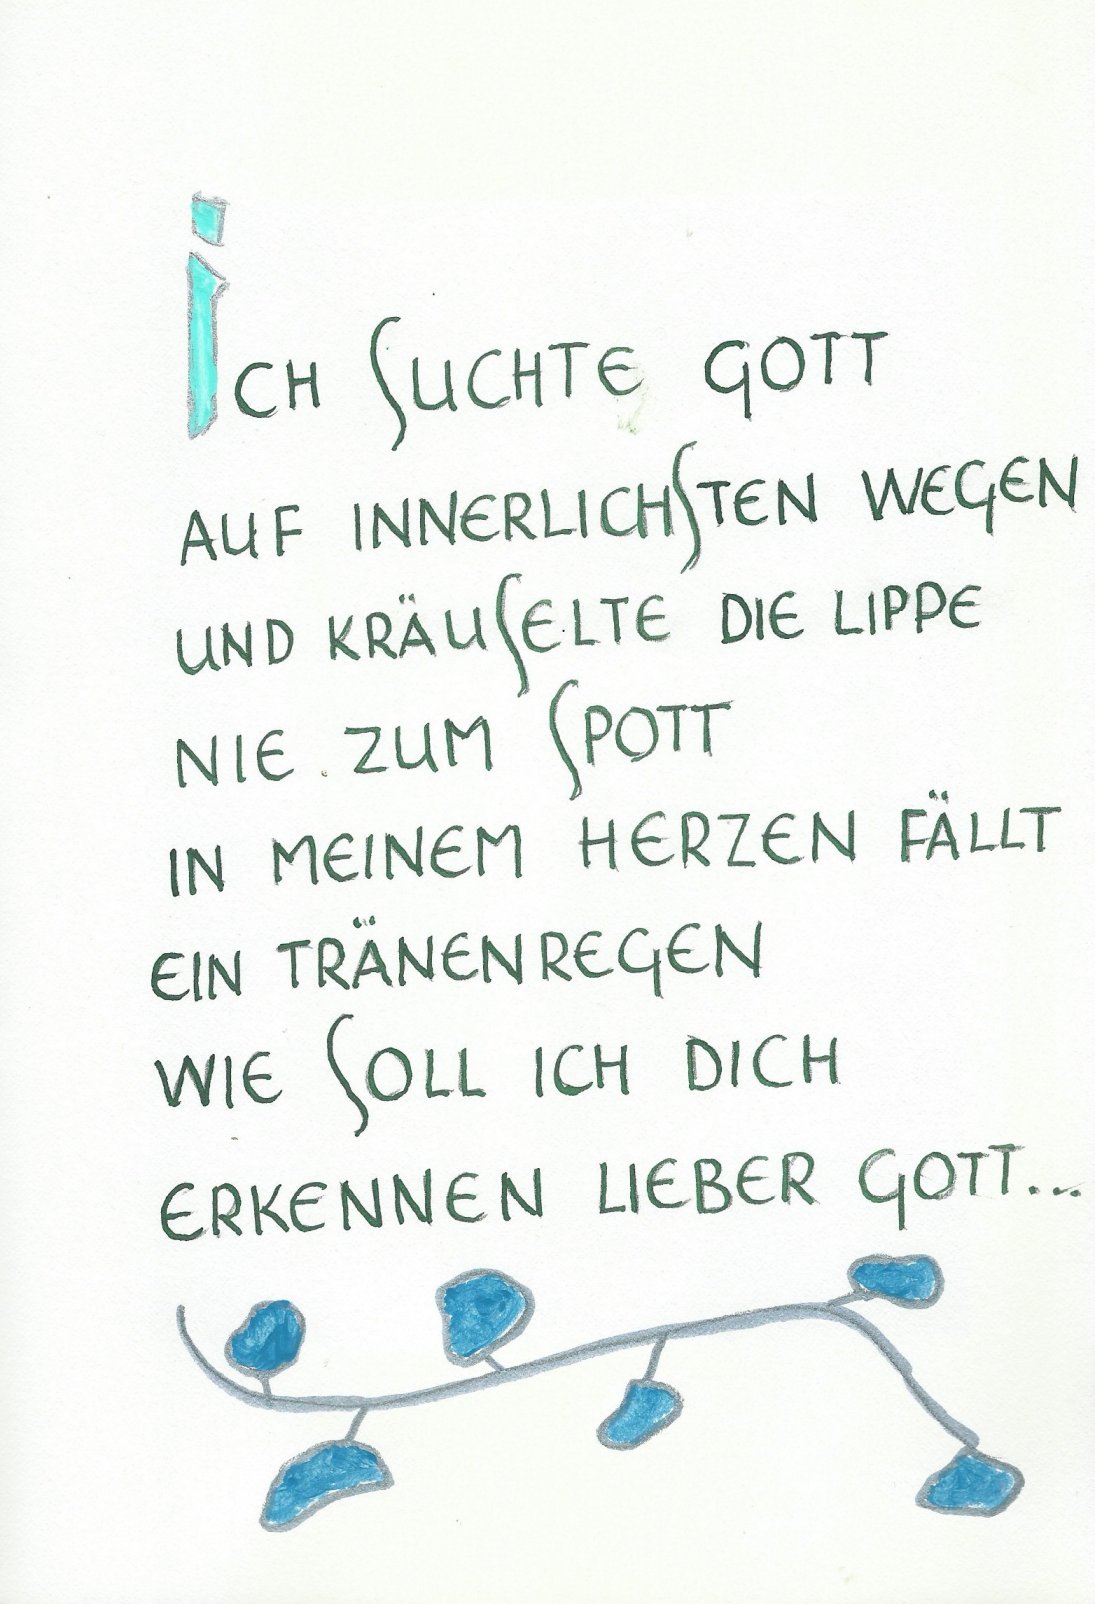 iCH SUCHTE GOTT
AUF INNERLICHSTEN WEGEN
UND KRÄUSELTE DIE LIPPE
NIE ZUM SPOTT
IN MEINEM HERZEN FÄLLT
EIN TRÄNENREGEN
WIE SOLL ICH DICH
ERKENNEN LIEBER GOTT...